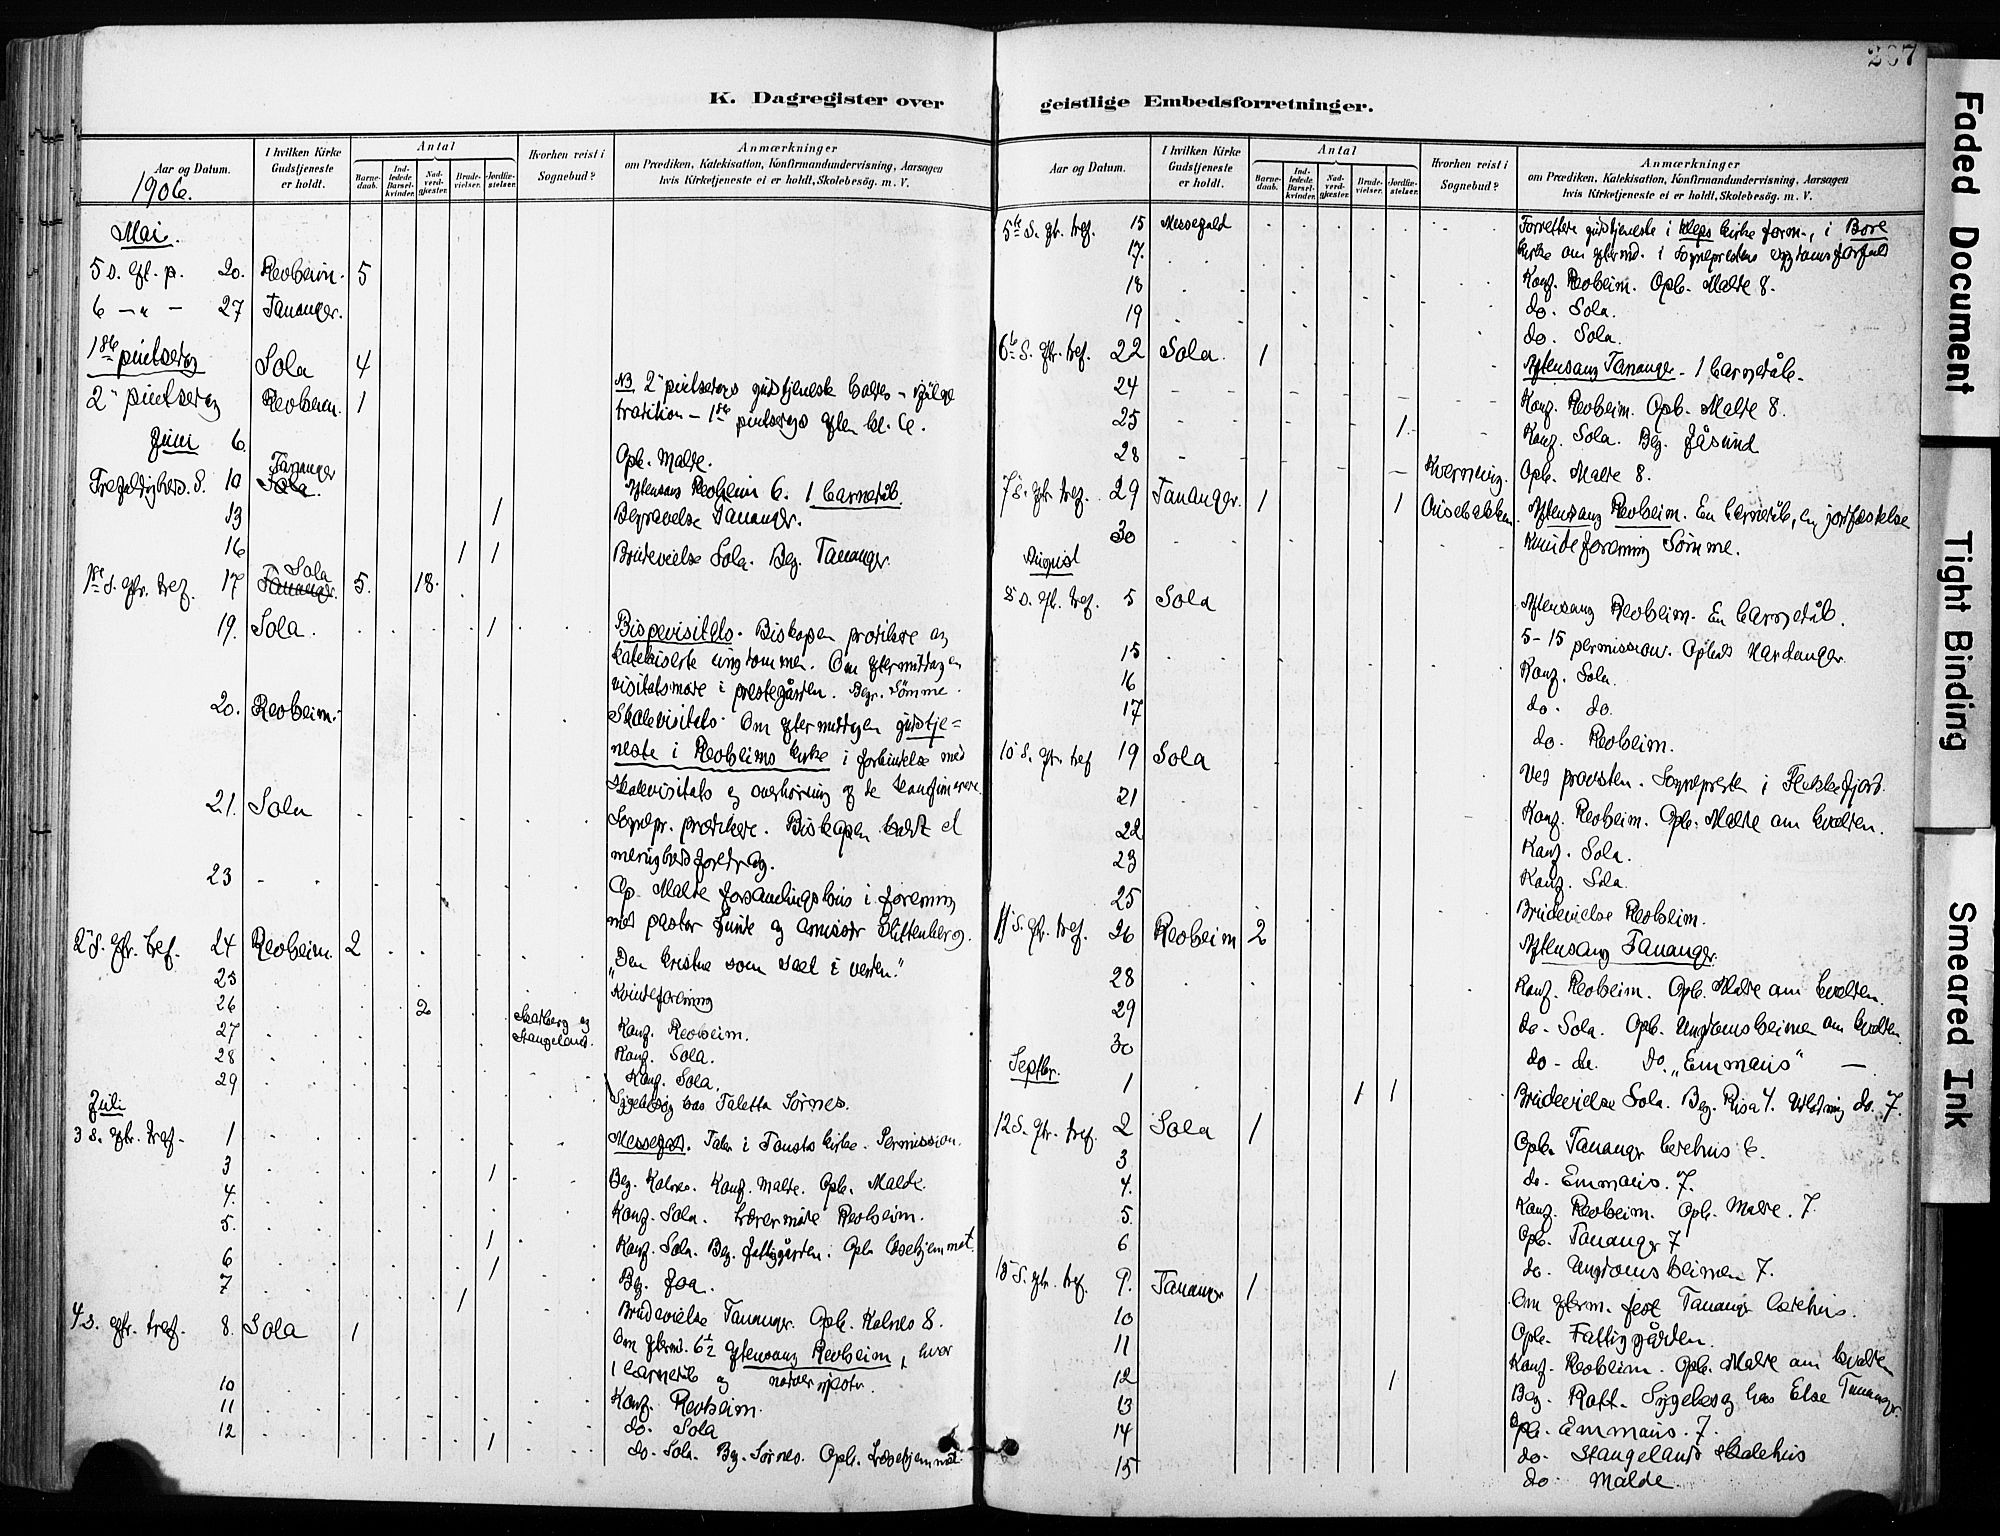 267
K. Dagregister over geistlige Embedsforretninger.
Aar og Datum.
1906.
I hvilken Kirke Gudstjeneste er holdt.
Antal
Barnedaab.
Indledede Barselkvinder.
Nadverdgjester.
Brudevielser.
Jordfæstelser.
Hvorhen reist i Sognebud?
Anmærkninger
om Prædiken, Katekisation, Konfirmandundervisning, Aarsagen
hvis Kirketjeneste ei er holdt, Skolebesøg. m. V.
Mai.
5 s. eft. p. 20. Revheim. 5
6 — " — 27 Tananger.
1ste pintsedag Sola 4
2" pintsedag Revheim. 1 NB 2" pintsedags gudstjeneste holdes - ifølge
tradition - 1ste pintsedags aften kl. 6.
Juni 6. Opb. Malde.
Trefoldigheds. S. 10 Tananger Sola. Aftensang Revheim 6. 1 barnedåb.
13 1 Begravelse Tananger.
16 1 1 Brudevielse Sola. Beg. Tananger.
1ste s. eftr. tref. 17 Sola Tananger. 5. 18.
19. Sola. 1 Bispevisitats. Biskopen prædikede og
katekiserte ungdommen. Om eftermiddagen
visitatsmøde i prestegården. Begr. Sømme.
20. Revheim. Skolevisitats. Om eftermiddagen gudstje=
neste i Revheims kirke i forbindelse med
skolevisitats og overhøring af de konfirmerede.
21. Sola Sognepr. prædikede. Biskopen holdt et
menighedsforedrag.
23 Op. Malde forsamlingshus i forening
med pastor Lunde og
2" S. eftr. tref. 24 Revheim. 2 "Den kristne som sæd i verden."
25 Kvindeforening
26 2 Skadberg og Stangeland. Konf. Revheim.
27 Konf. Sola.
28 Konf. Sola.
29 Sygebesøg hos Taletta Sørnes.
Juli
3 S. eftr. tref. 1 Messefald. Taler i Fausta kirke. Permission.
3 1 Beg. Kolnes. Konf. Malde. Opb. Malde.
4. Konf. Sola. Lærermøde Revheim.
5. 1 Konf. Sola. Beg. fattiggården. Opb.
6 1 Beg. Joa.
7 1 Brudevielse Tananger. Opb. Kolnes 8.
4 s. eftr. tref. 8. Sola 1 Om efterm. 6½ aftensang Revheim, hvor
1 barnedåb og nadvergjestr.
10 Konf. Revheim.
11 do. Sola
12 1 do. Sola. Beg. Sørnes. Opb.
Aar og Datum.
I hvilken Kirke Gudstjeneste er holdt.
Antal
Barnedaab.
Indledede Barselkvinder.
Nadverdgjester.
Brudevielser.
Jordfæstelser.
Hvorhen reist i Sognebud?
Anmærkninger
om Prædiken, Katekisation, Konfirmandundervisning, Aarsagen
hvis Kirketjeneste ei er holdt, Skolebesøg. m. V.
5te S. eftr. tref. 15 Messefald Forrettede gudstjeneste i Kleps kirke form., i Bore
kirke om eftermd. i sogneprestens sygdomsforfald
17. Konf. Revheim. Opb. Malde 8.
18 do. Sola.
19 do. Sola.
6te S. eftr. tref. 22 Sola. 1 Aftensang Tananger - 1 barnedåb.
24 Konf. Revheim. Opb. Malde 8.
25 1 Konf. Sola. Beg. Jåsund
28 Kverneng. Opb. Malde 8.
7 S. eftr. tref. 29 Tananger. 1 1 Aftensang Revheim. En barnedåb, en jordfæstelse
30 Kvindeforening Sømme.
August
8 s. eft. tref. 5 Sola Aftensang Revheim. En barnedåb.
5-15 permission. Ophold Hardanger.
15 Konf. Sola.
16 do. do.
17 do. Revheim.
10 S. eftr. tref 19 Sola Ved provsten. Sogneprest i Flekkefjord.
21 Konf. Revheim. Opb. Malde om kvelden.
22 Konf. Sola.
23 Konf. Sola.
25 Brudevielse Revheim.
11 S. eft. tref. 26 Revheim 2 Aftensang Tananger.
28 Konf. Revheim. Opb. Malde om kvelden.
29 do - Sola. Opb. Ungdomsheimen om kvelden.
30 do - do. do. "Emmaus" —
Septbr. 1 1 1 Brudevielse Sola. Beg. Risa 4. do. 7.
12 S. eftr. tref. 2 Sola 1 Opb. Tananger bedehus 6.
3 do. Emmaus. 7.
4. Konf. Revheim. Opb. Malde. 7.
5. Opb. Tananger 7
6 do. Ungdomsheimen 7.
13 S. eftr. tref. 9. Tananger 1 Om efterm. fest Tananger bedehus.
10 Opb. Fattiggården.
11 Konf. Revheim. Opb. Malde om kvelden
12 1 Beg. Raft. Sygebesøg hos Else Tananger.
13 Opb. Emmaus. 7.
14 do. Stangelands skolehus
15 do. Malde.
Faded Document
Tight Binding
Smeared Ink